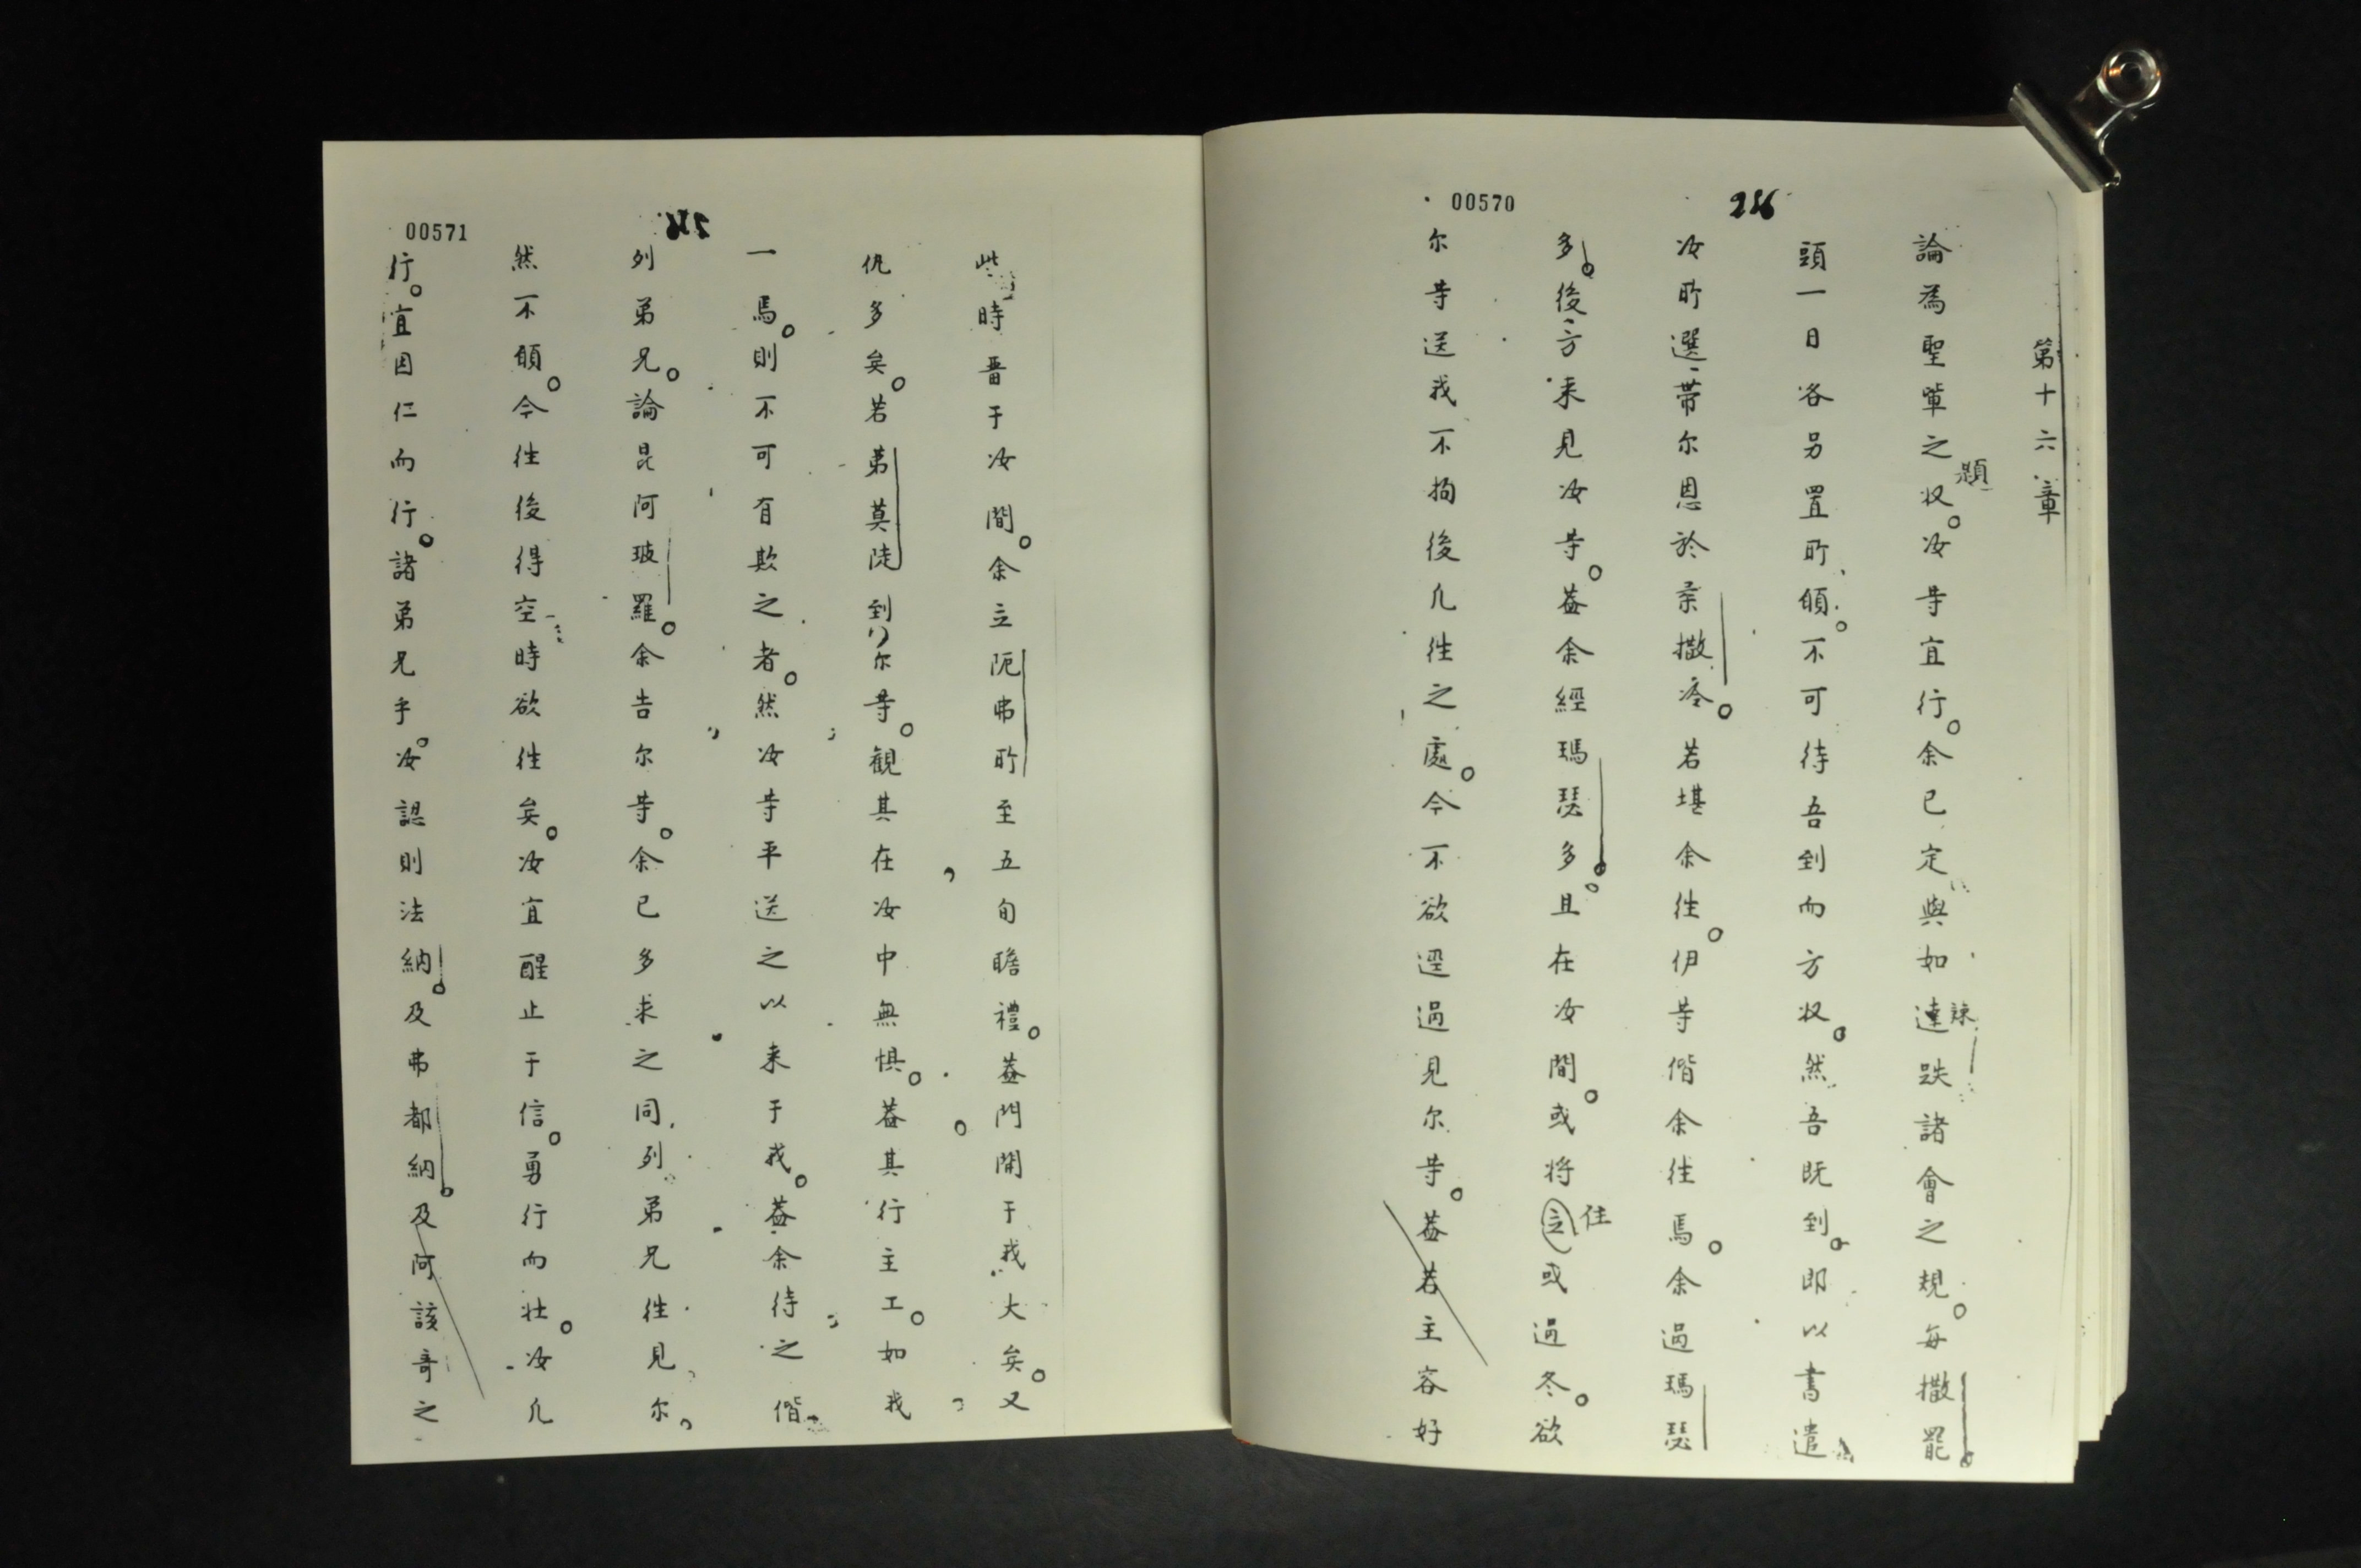 00570
226
第十六章
論為聖軰之収。汝等宜行。余已定與如達跌諸會之規。每撒罷
題
諫
頭一日各另置所願。不可待吾到而方収。然吾既到。即以書遣
汝所選帯尔恩於柔撒冷。若堪余徃。伊等偕余徃焉。余過瑪瑟
多。後方来見汝等。葢余經瑪瑟多。且在汝間。或将立或過冬。欲
住
尔等送我不拘後凢徃之處。今不欲遥過見尔等。葢若主容好
00571
此時晋于汝間。余立阨弗所至五旬瞻禮。葢門開于我大矣。又
仇多矣。若弟莫陡到尔等。観其在汝中無惧。葢其行主工。如我
一焉。則不可有欺之者。然汝等平送之以来于我。葢余待之偕
列弟兄。論昆阿玻羅。余告尔等。余已多求之同列弟兄徃見尔。
然不願。今徃後得空時欲徃矣。汝宜醒止于信。勇行而壮。汝凢
行。宜因仁而行。諸弟兄乎。汝認則法納。及弗都納。及阿該哥之